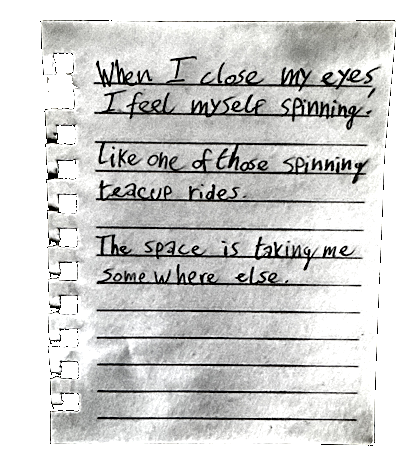 When I close my eyes,
I feel myself spinning.
Like one of those spinning
teacup rides.
The space is taking me
somewhere else.